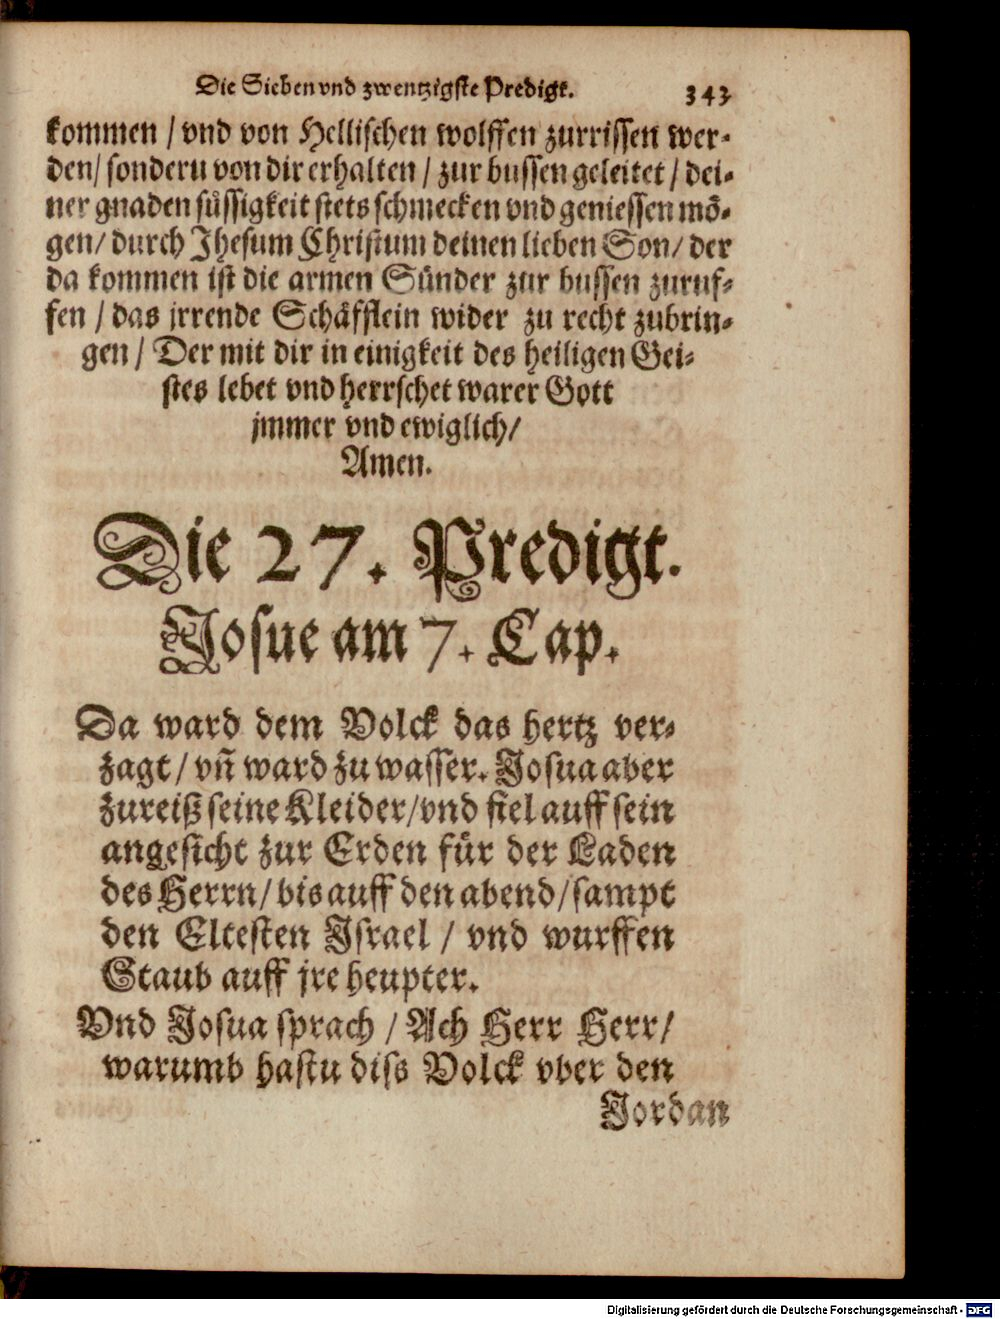 Die Sieben vnd zwentzigste Predigt. 343
kommen / vnd von Hellischen wolffen zurrissen wer-
den/ sondern von dir erhalten / zur bussen geleitet / dei-
ner gnaden süssigkeit stets schmecken vnd geniessen mö-
gen/ durch Jhesum Christum deinen lieben Son/ der
da kommen ist die armen Sünder zur bussen zuruf-
fen / das jrrende Schäfflein wider zu recht zubrin-
gen / Der mit dir in einigkeit des heiligen Gei-
stes lebet vnd herrschet warer Gott
jmmer vnd ewiglich/
Amen.
Die 27. Predigt.
Josue am 7. Cap.
Da ward dem Volck das hertz ver-
zagt / vñ ward zu wasser. Josua aber
zureiß seine Kleider/vnd fiel auff sein
angesicht zur Erden für der Laden
des Herrn/ bis auff den abend/sampt
den Eltesten Jsrael / vnd wurffen
Staub auff jre heupter.
Vnd Josua sprach / Ach Herr Herr/
warumb hastu diss Volck vber den
Jordan
Digitalisierung gefördert durch die Deutsche Forschungsgemeinschaft - DFG